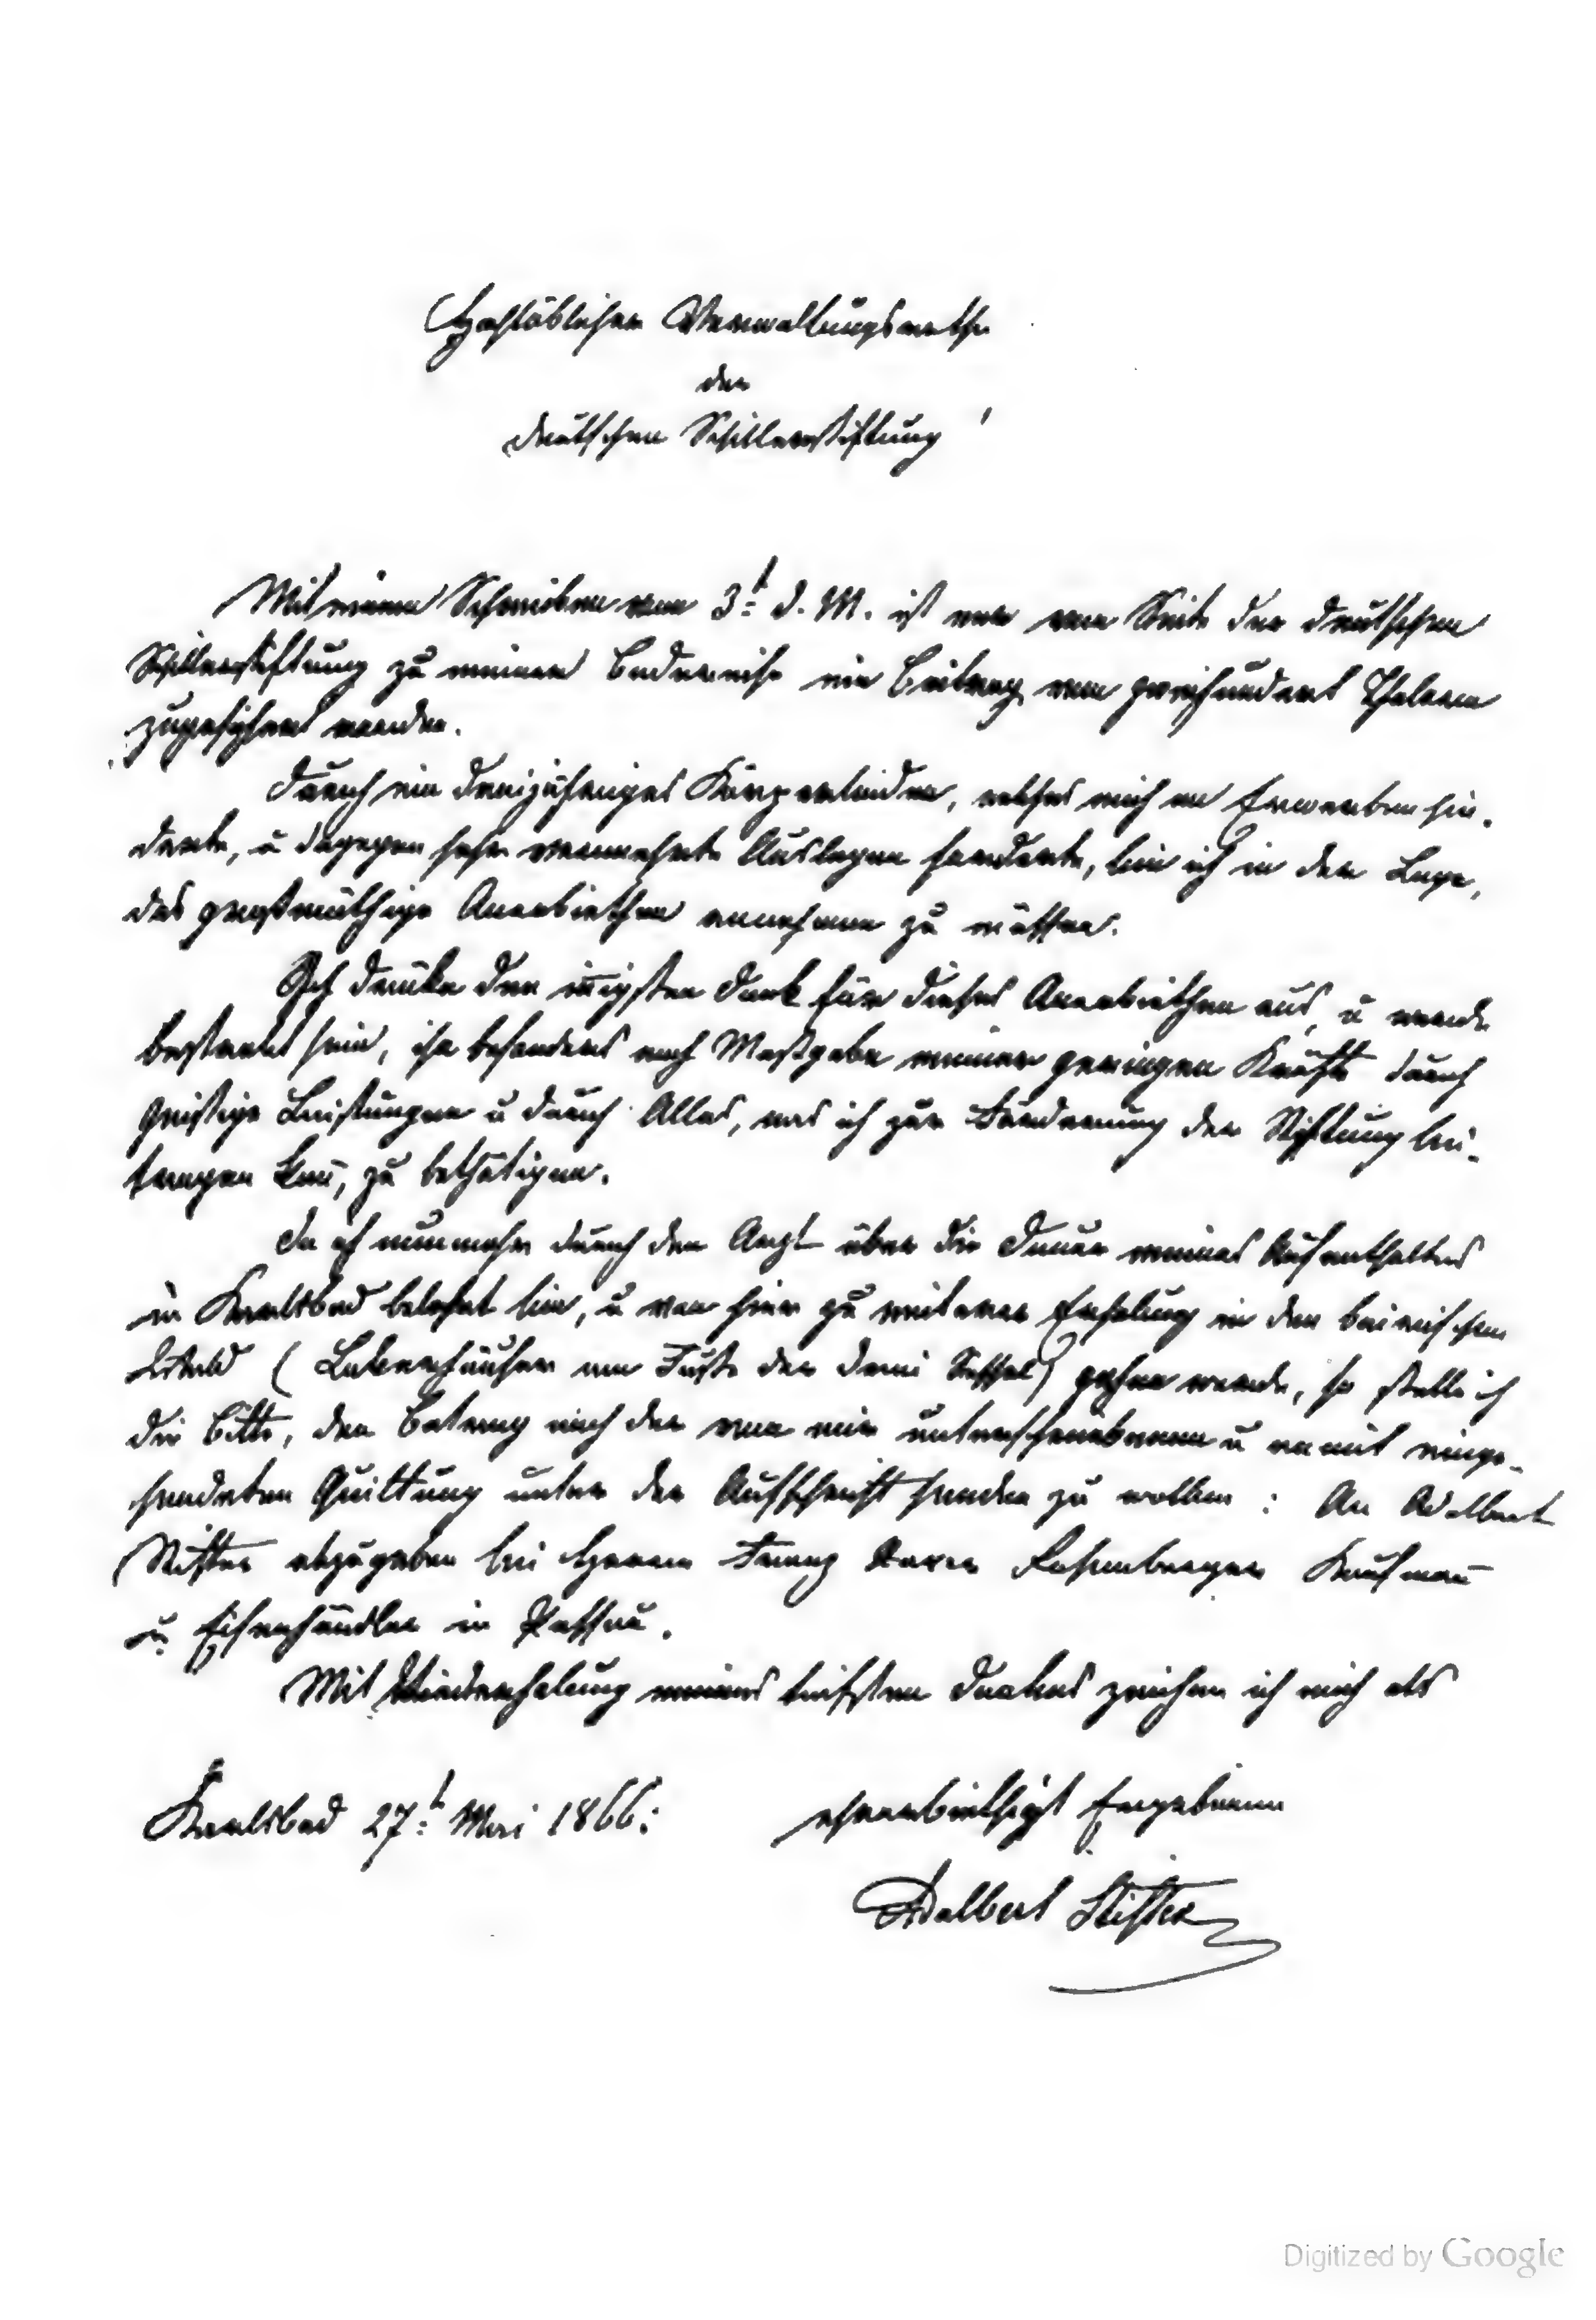 Hochlöblicher Verwaltungsrath
der
deutschen Schillerstiftung!
Mit einem Schreiben vom 3t d. M. ist mir von Seite der deutschen
Schillerstiftung zu meiner Badereise ein Beitrag von zweihundert Thalern
zugesichert worden.
Durch ein dreijähriges Körperleiden, welches mich am Erwerben hin-
derte, u dagegen sehr vermehrte Auslagen forderte, bin ich in der Lage,
das großmüthige Anerbiethen annehmen zu müssen.
Ich drüke den innigsten Dank für dieses Anerbiethen aus, u werde
bestrebt sein, ihn besonders nach Maßgabe meiner geringen Kräfte durch
geistige Leistungen u durch Alles, was ich zur Förderung der Stiftung bei-
tragen kann, zu bethätigen.
Da ich nunmehr durch den Arzt über die Dauer meines Aufenthaltes
in Karlsbad belehrt bin, u von hier zu weiterer Erholung in den bairischen
Wald (Lakerhäuser am Fuße der drei Sessel) gehen werde, so stelle ich
die Bitte, den Betrag nach der von mir unterschriebenen u anmit einge-
sendeten Quittung unter der Aufschrift senden zu wollen: An Adalbert
Stifter abzugeben bei Herrn Franz Xaver Rosenberger Kaufmann
u. Eisenhändler in Passau.
Mit Wiederholung meines tiefsten Dankes zeichne ich mich als
Karlsbad 27t Mai 1866:
ehrerbiethigst Ergebenen
Adalbert Stifter
Digitized by Google